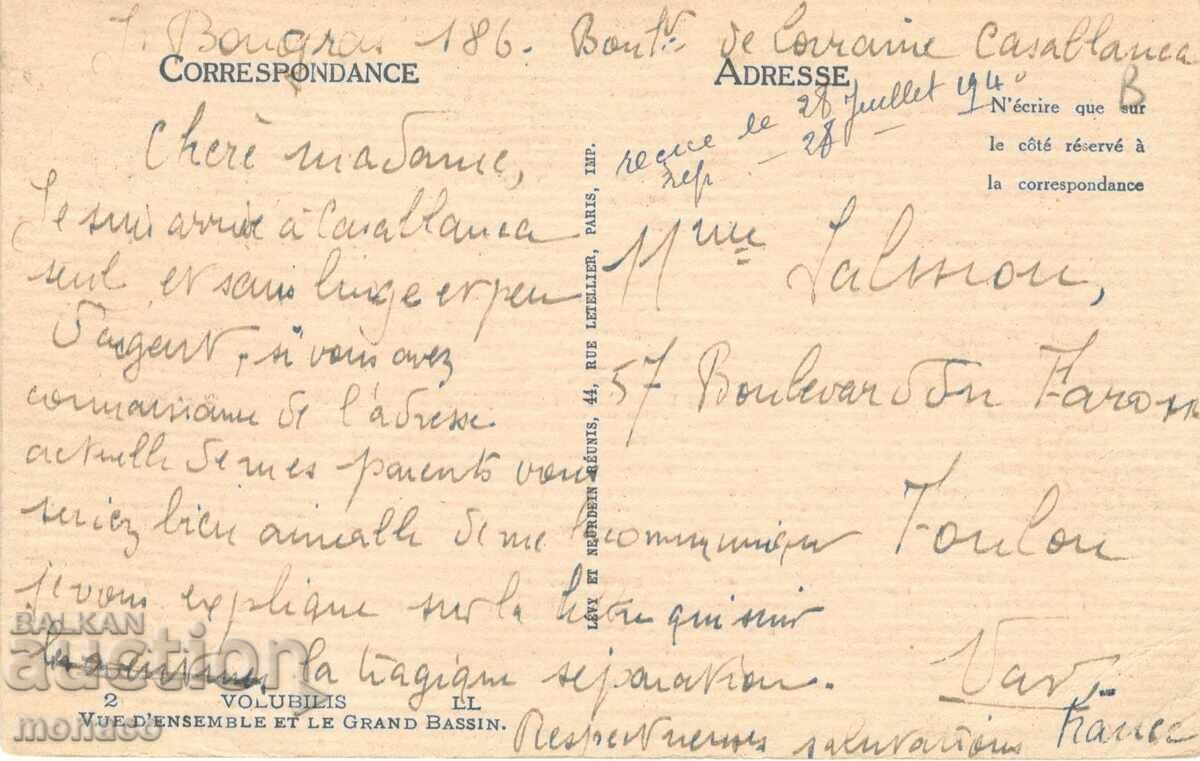 J. Bougras 186. Boul de Lorraine Casablanca
CORRESPONDANCE
Chère madame,
Je suis arrivé à Casablanca
seul et sans linge et peu
d'argent, si vous avez
connaissance de l'adresse
actuelle de mes parents vous
seriez bien aimable de me la communiquer
je vous explique sur la lettre qui suit
la tragique séparation.
Respectueuses salutations
ADRESSE
B
N'écrire que sur
le côté réservé à
la correspondance
reçue le 28 Juillet 194
rep - 28 -
Mme Salmon,
57 Boulevard du Faron
Toulon
Var
France
LÉVY ET NEURDEIN RÉUNIS, 44, RUE LETELLIER, PARIS, IMP.
2 VOLUBILIS LL
VUE D'ENSEMBLE ET LE GRAND BASSIN.
BALKAN
auction
monaco